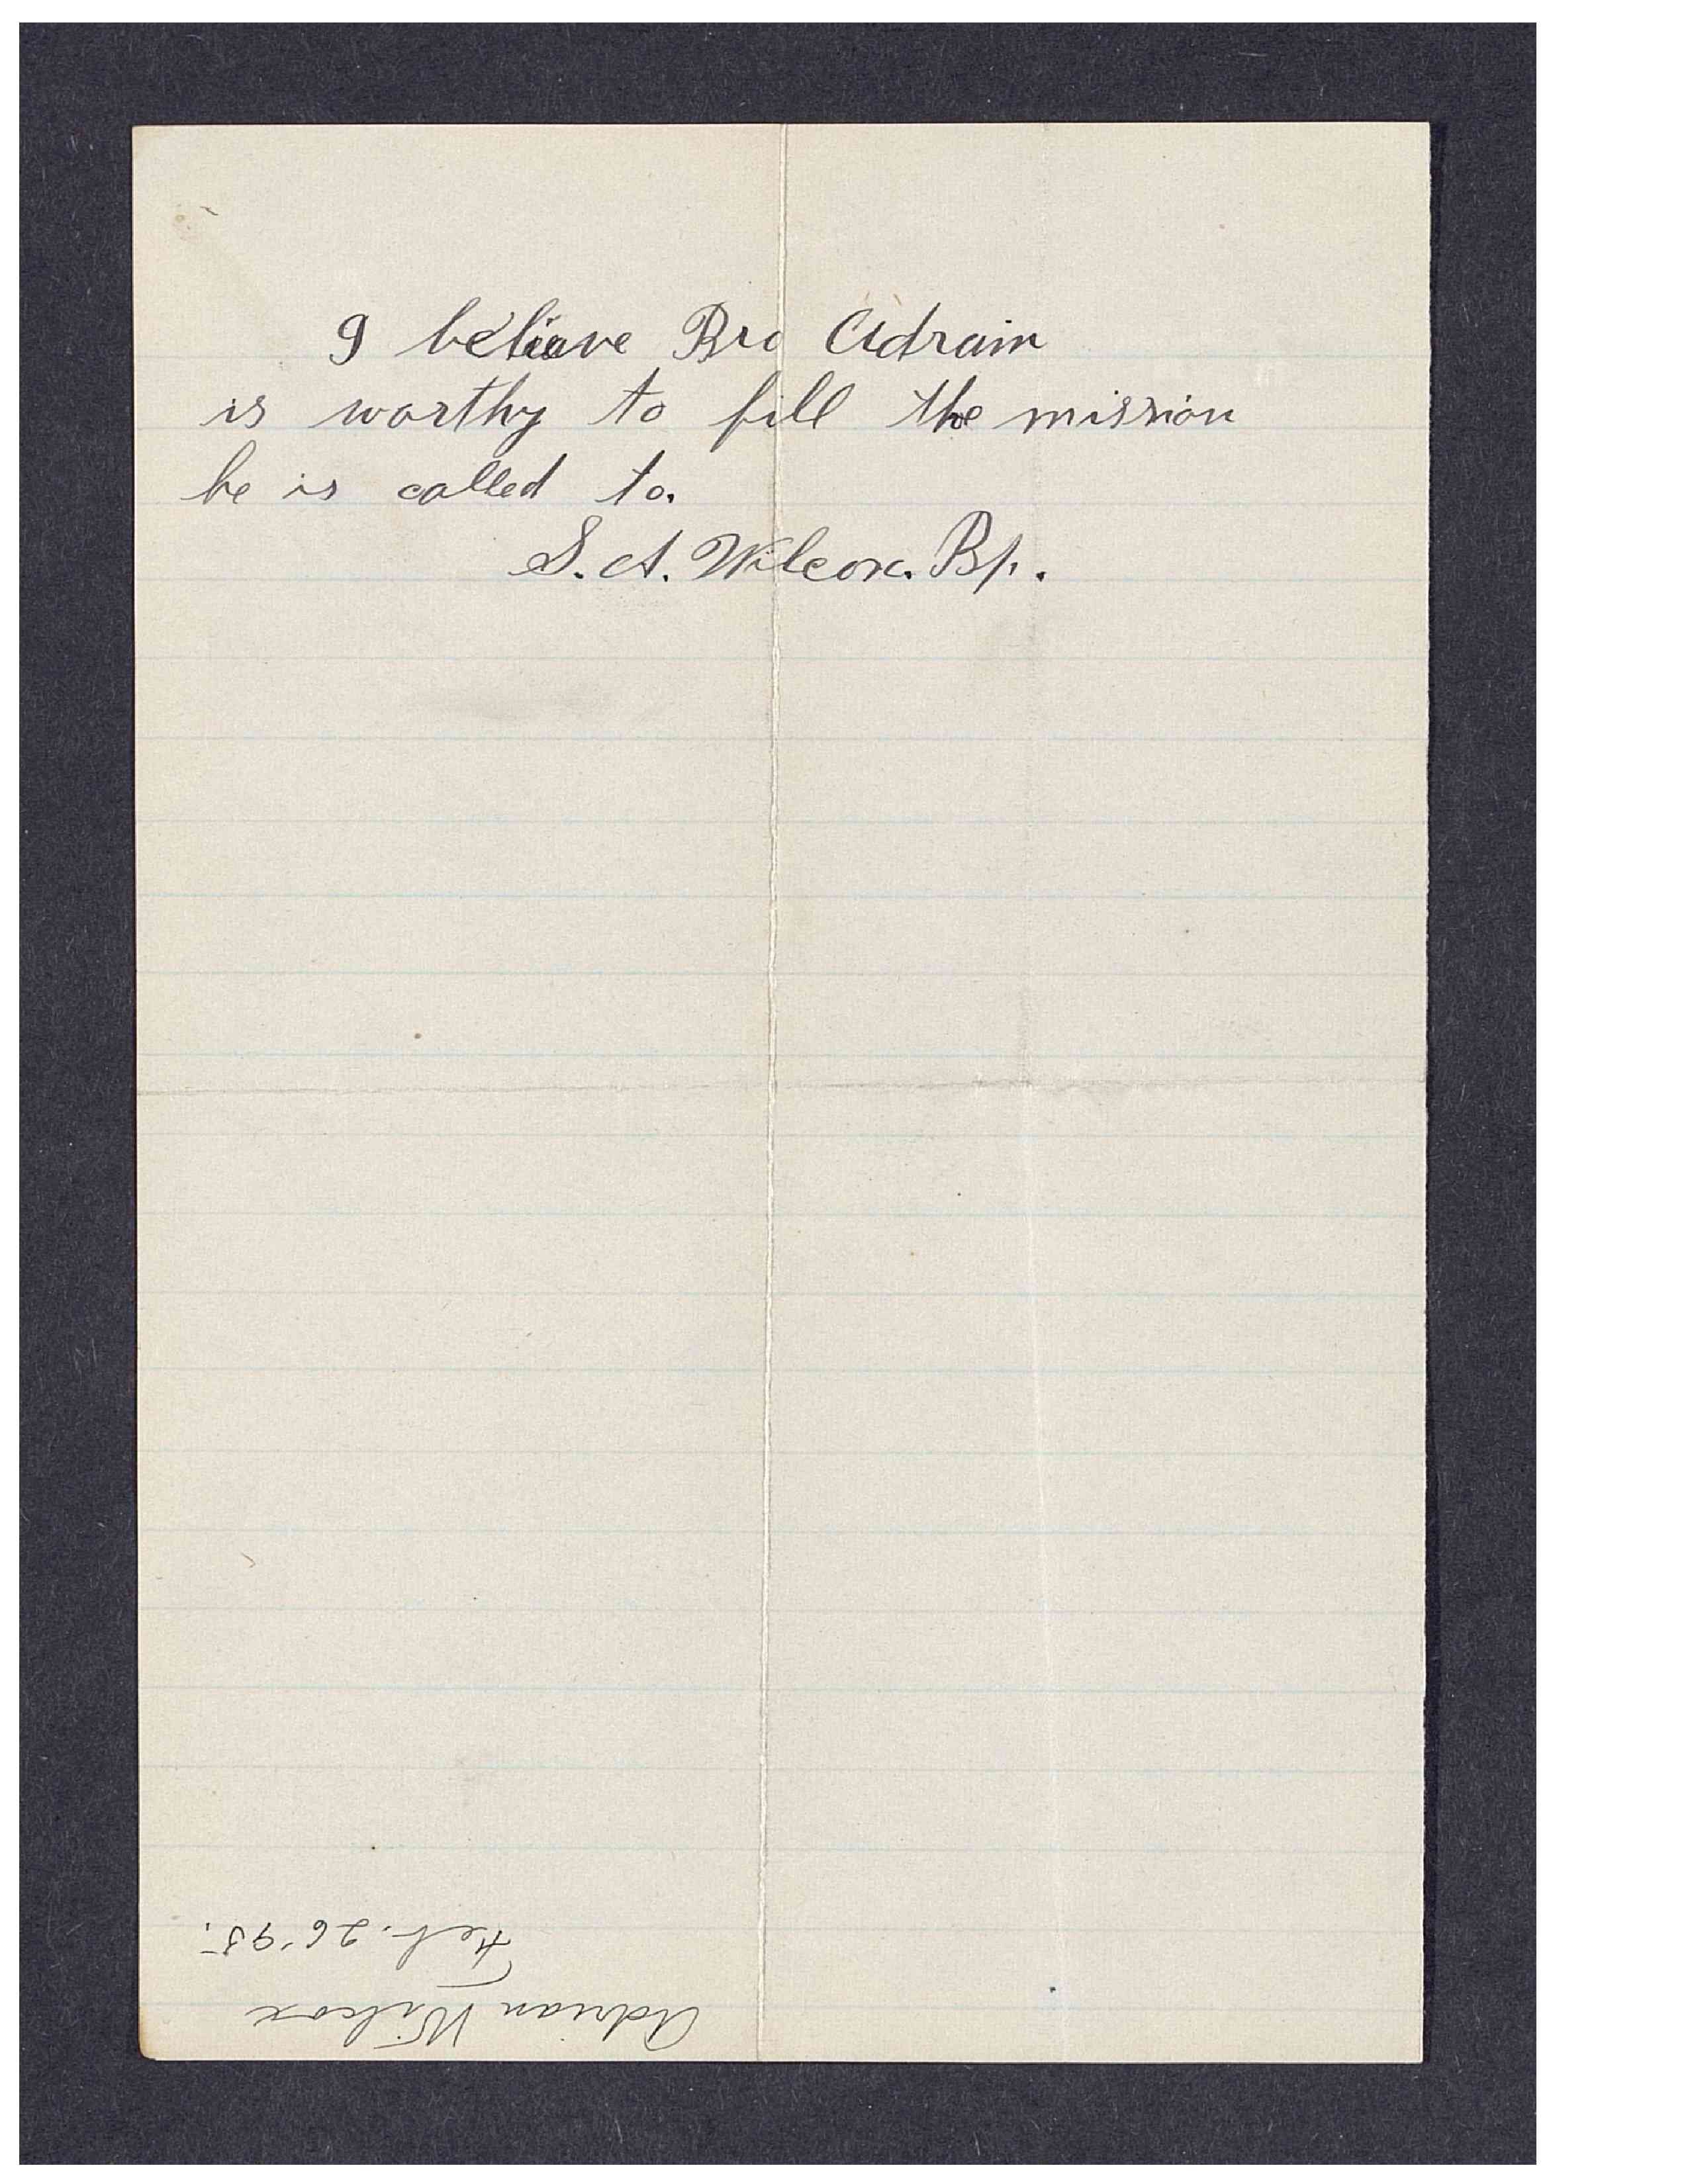 I believe Bro Adrain
is worthy to fill the mission
he is called to.
S. A. Wilcox. Bp.
Adrian Wilcox
Feb. 26 '95.